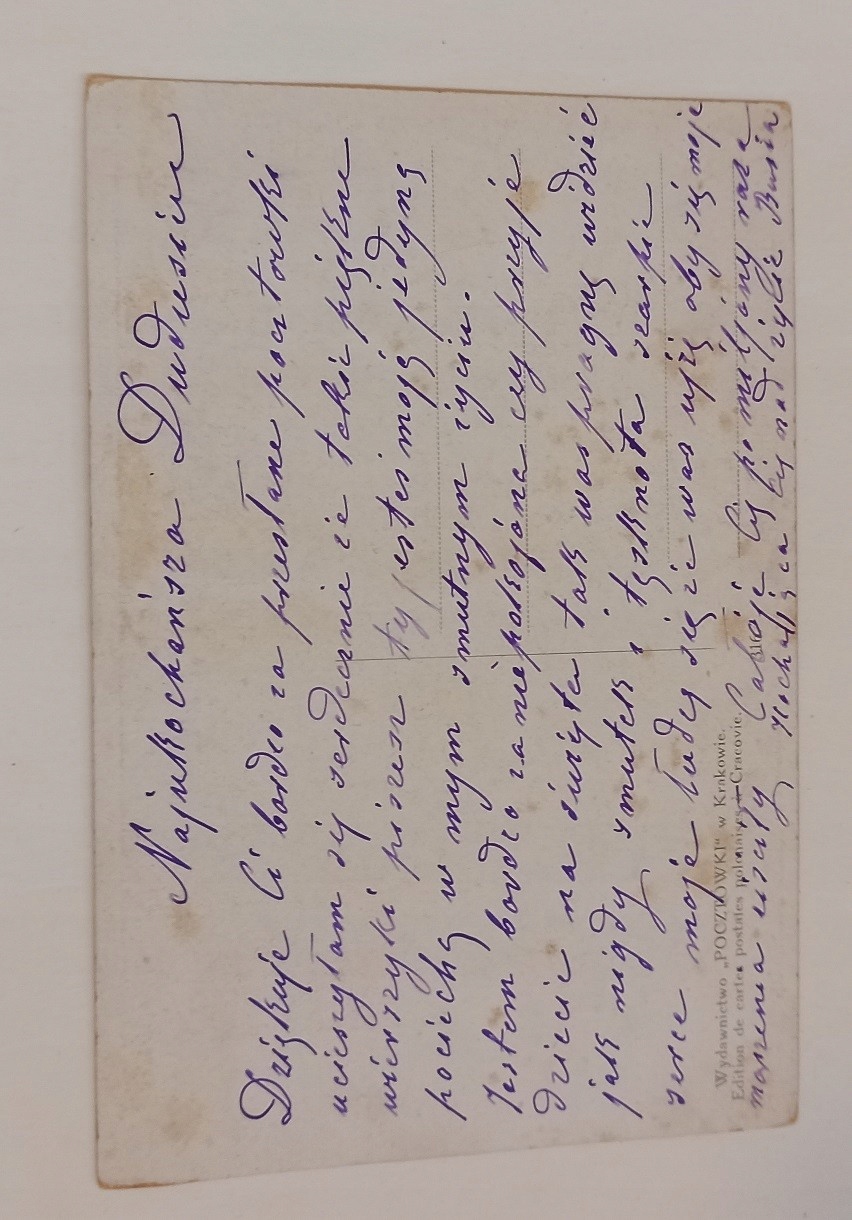 Najukochańsza Dudusiu
Dziękuję Ci bardzo za przesłane pocztowki
ucieszyłam się serdecznie że takie piękne
wierszyki piszesz ty jesteś moją jedyną
pociechą w mym smutnym życiu.
Jestem bardzo zaniepokojona czy przyje
dziecie na święta tak was pragnę widzieć
jak nigdy smutek i tęsknota szarpie
serce moje łudzę się że was ujżę oby się moje
marzenia ziściły Całuję Cię po miljony razy
Kochająca Cię nad życie Busia
Wydawnictwo „POCZTÓWKI" w Krakowie.
Edition de cartes postales polonaises à Cracovie.